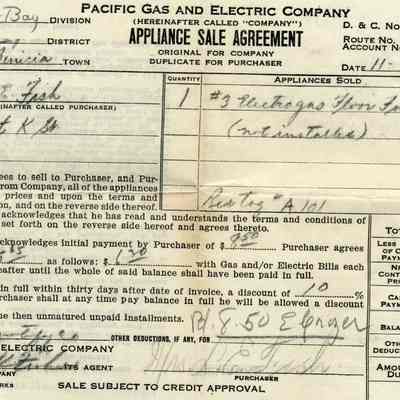 PACIFIC GAS AND ELECTRIC COMPANY
Bay DIVISION (HEREINAFTER CALLED "COMPANY") D. & C. No
DISTRICT APPLIANCE SALE AGREEMENT ROUTE NO.
Benicia TOWN ORIGINAL FOR COMPANY ACCOUNT NO
DUPLICATE FOR PURCHASER DATE 11-
QUANTITY APPLIANCES SOLD
E. Fish 1 #3 Electrogas Floor
INAFTER CALLED PURCHASER) (not installed)
K St
Red tag # A 101
ees to sell to Purchaser, and Pur-
rom Company, all of the appliances
prices and upon the terms and
on, and on the reverse side hereof.
acknowledges that he has read and understands the terms and conditions of
set forth on the reverse side hereof and agrees thereto.
cknowledges initial payment by Purchaser of $8.50 Purchaser agrees
as follows: $ with Gas and/or Electric Bills each
eafter until the whole of said balance shall have been paid in full.
in full within thirty days after date of invoice, a discount of 10 %
rchaser shall at any time pay balance in full he will be allowed a discount
he then unmatured unpaid installments.
OTHER DEDUCTIONS, IF ANY, FOR 8.50
ELECTRIC COMPANY
ITS AGENT
PURCHASER
SALE SUBJECT TO CREDIT APPROVAL
TO
LESS
OF C
PAYM
NE
CONT
PRIC
CA
PAYM
BALA
OTHE
DEDUC
AMOU
DU